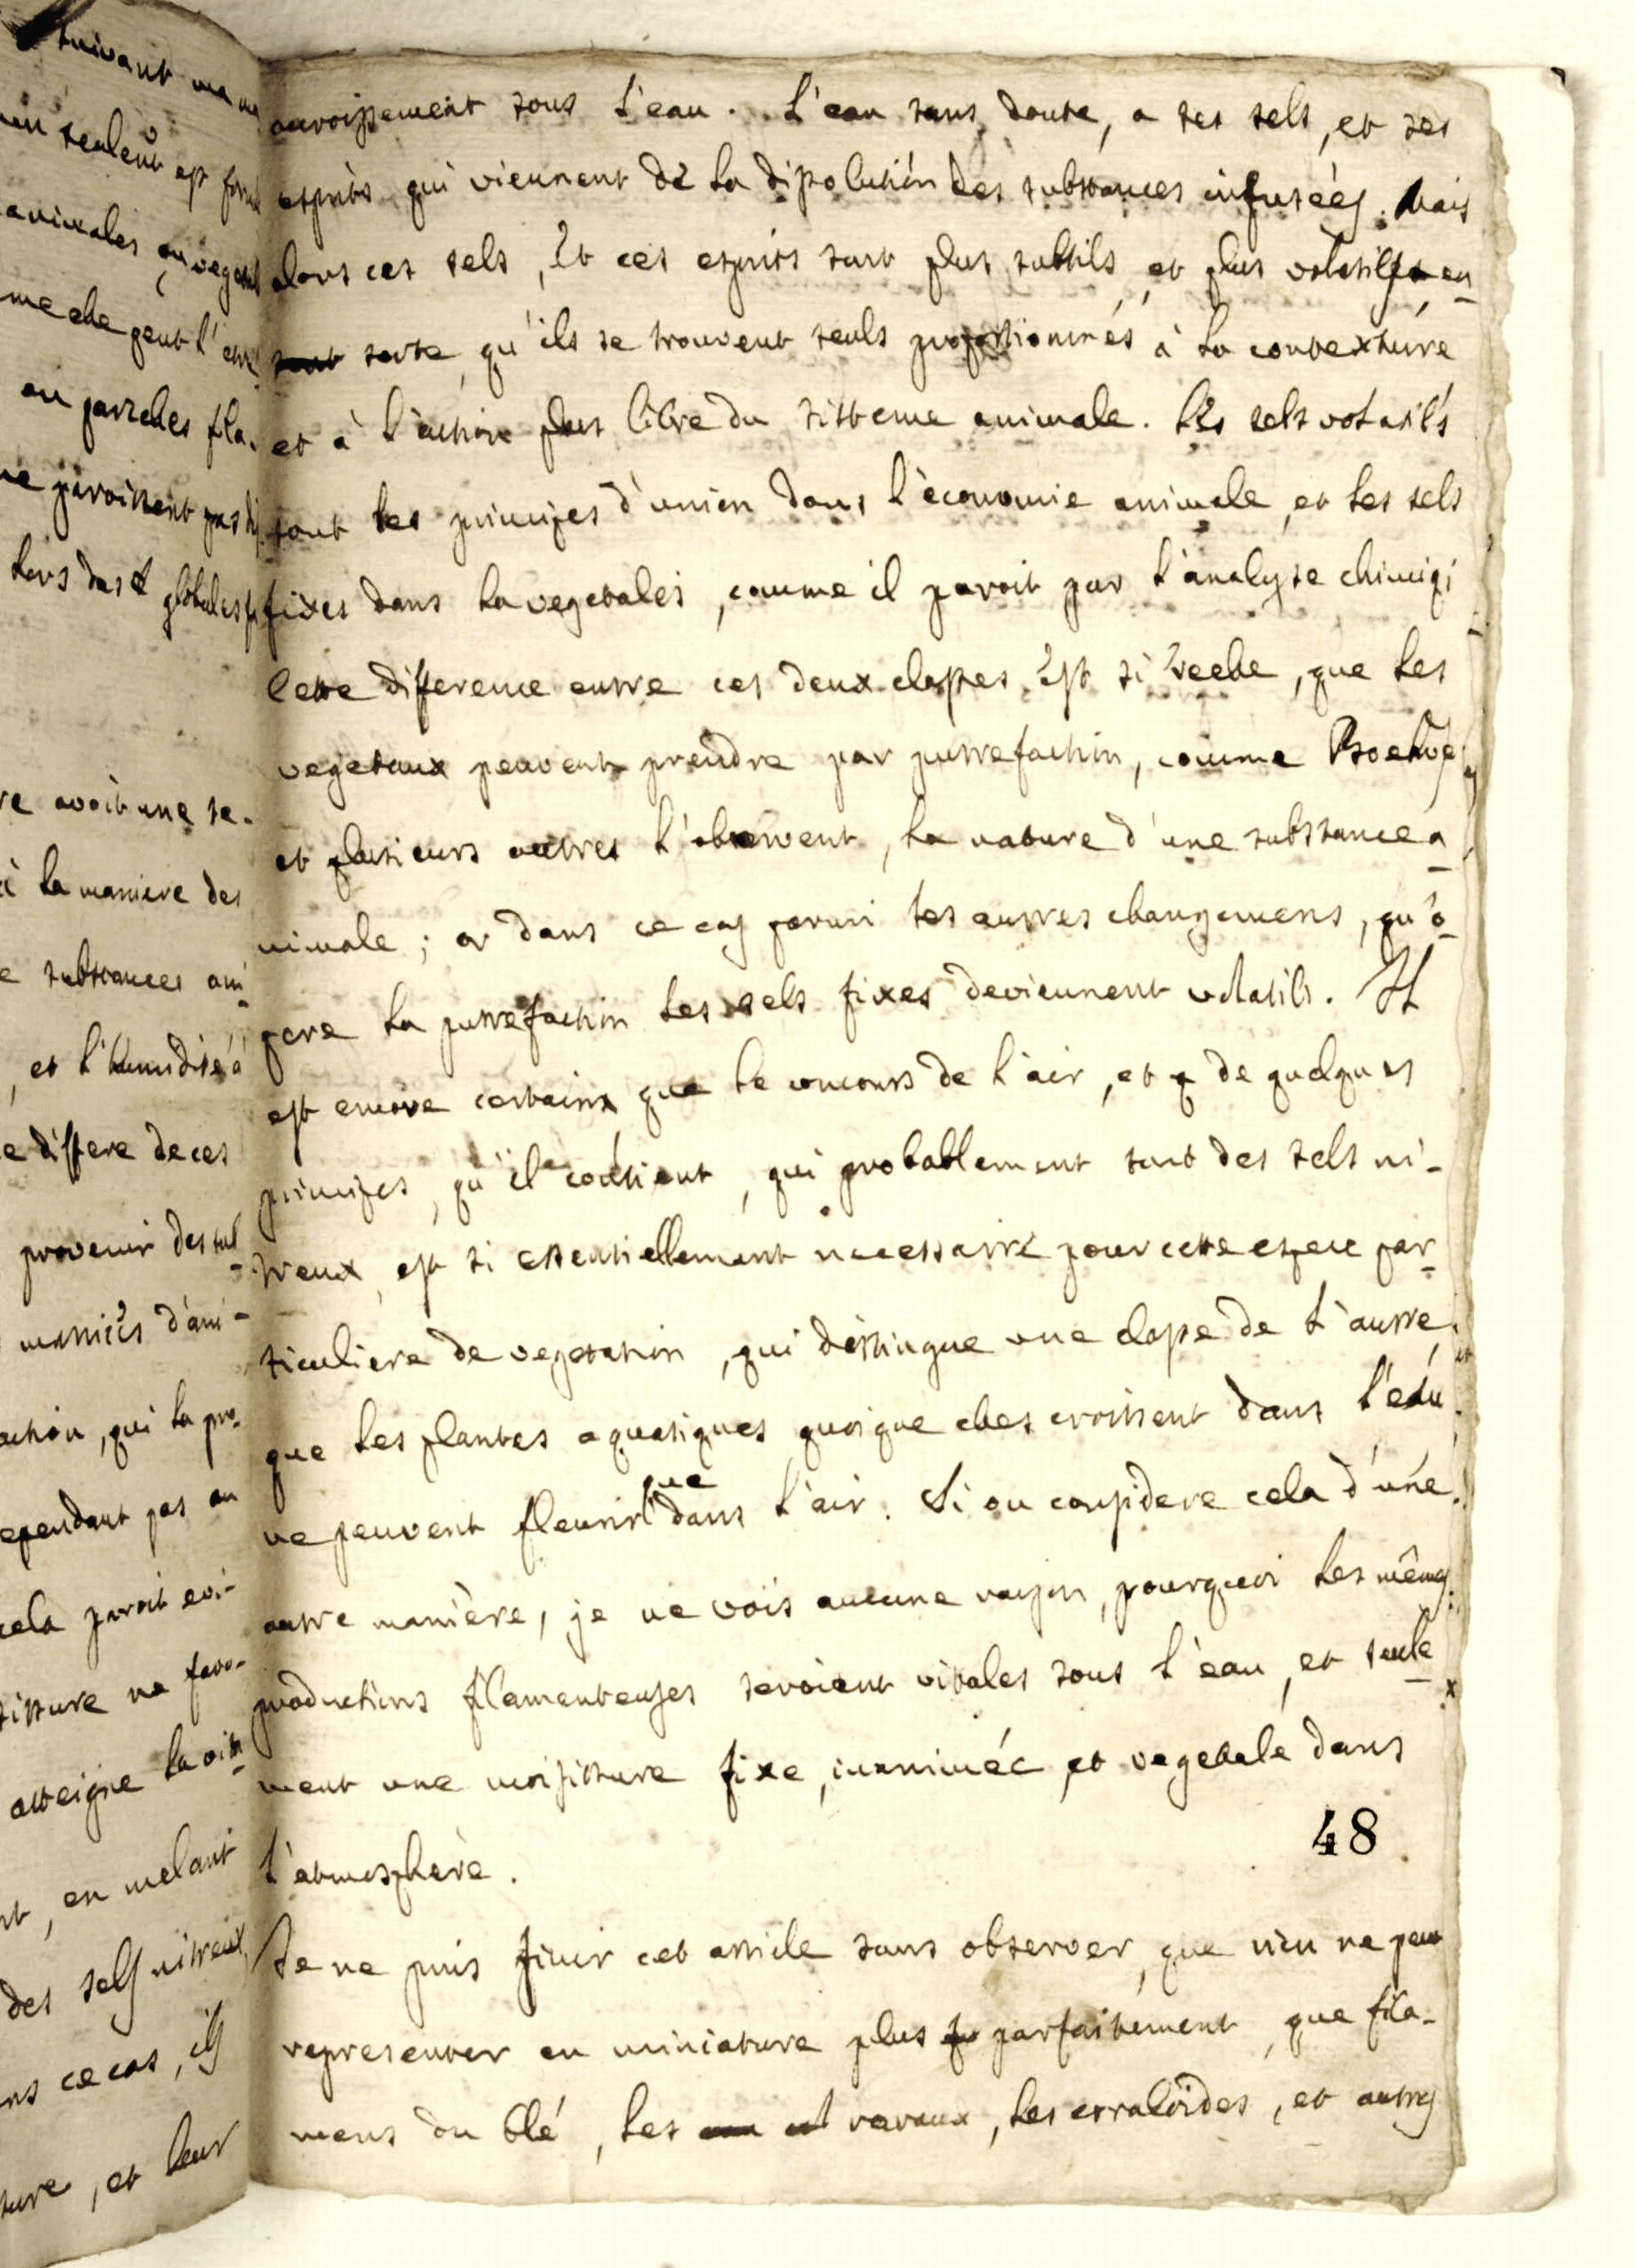 suivant ma
seulemt est form
animales, ou veget
me elle peut l'etre
ou parcelles fila-
ne paroissent pas di
lors des globules
re avoit une se-
à la maniere des
e substances ani-
, et l'humidité à
e differe de ces
provenir des sub-
matiers d'ani-
action, qui la pro-
ependant pas au
cela paroit evi-
sissure ne favo-
atteigne la
nt, en melant
des sels nitreux
ns ce cas, ils
ture, et leur
accroissement sous l'eau. L'eau sans doute, a ses sels, et ses
esprits qui viennent de la dissolution des substances infusées. Mais
alors ces sels, et ces esprits sont plus subtils, et plus volatils en
sorte qu'ils se trouvent seuls proportionnés à la contexture
et à l'action plus libre du sisteme animale. Les sels volatils
sont les principes d'union dans l'economie animale, et les sels
fixes dans la vegetales, comme il paroit par l'analyse chimiq;
Cette difference entre ces deux classes est si reelle, que les
vegetaux peuvent prendre par putrefaction, comme Boerhave
et plusieurs autres l'observent, la nature d'une substance a-
nimale; or dans ce cas parmi les autres changemens, qu'o-
pere la putrefaction les sels fixes deviennent volatils. Il
est encore certain que le concours de l'air, et de quelques
principes, qu'il contient, qui probablement sont des sels ni-
treux, est si essentiellement necessaire pour cette espece par-
ticuliere de vegetation, qui distingue une classe de l'autre,
que les plantes aquatiques quoique elles croissent dans l'eau
ne peuvent fleurir que dans l'air. Si on considere cela d'une
autre manière, je ne vois aucune raison, pourquoi les mêmes
productions filamenteuses seroient vitales sous l'eau, et seule-
ment une moisissure fixe, inanimée, et vegetale dans
l'atmosphère.
48
Je ne puis finir cet article sans observer, que rien ne peut
representer en miniature plus parfaitement, que fila-
mens du blé, les ravaux, les corraloïdes, et autres